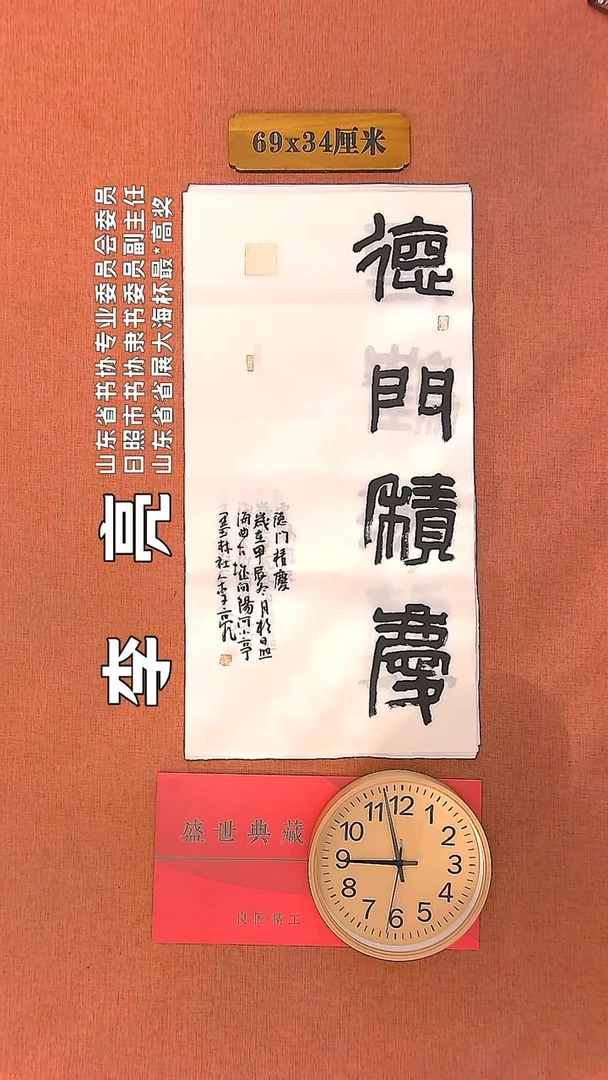 69x34厘米
德門積慶
德门積慶
歲在甲辰冬月於日照
海曲古城向陽河小亭
李亮
山东省书协专业委员会委员
日照市书协隶书委员副主任
山东省省展大海杯最*高奖
李 亮
盛世典藏
良匠精工
12
1
2
3
4
5
6
7
8
9
10
11